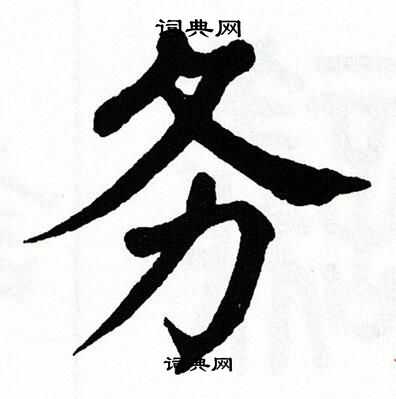 词典网
务
词典网